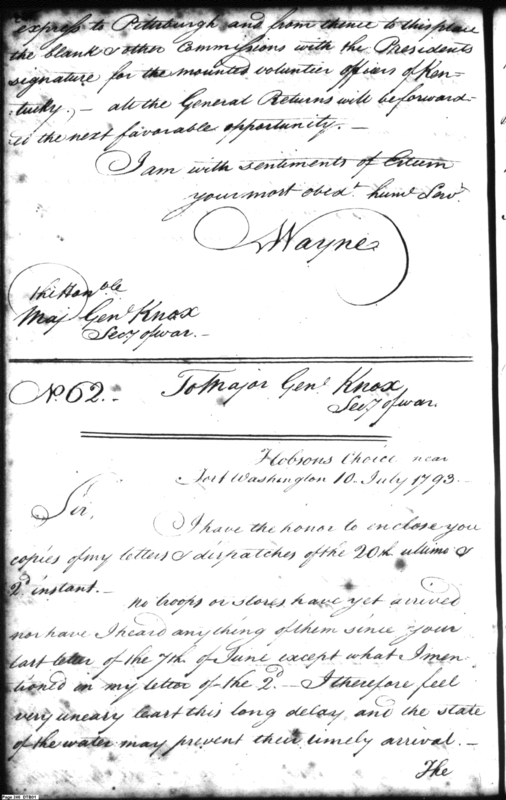 express to Pittsburgh and from thence to this place
the blank & other Commissions with the Presidents
signature for the mounted volunteer officers of Ken-
-tucky, — all the General Returns will be forward-
-ed the next favorable opportunity. —
I am with sentiments of Esteem
your most obedt. huml Servt.
Wayne
The Honble
Maj Genl Knox
Secy of war. —
No. 62. —
To Major Genl Knox
Secy of war.
Hobsons Choice near
Fort Washington 10. July 1793. —
Sir,
I have the honor to enclose you
copies of my letters & dispatches of the 20th ultimo &
2d instant. —
no troops or stores have yet arrived
nor have I heard any thing of them since your
last letter of the 7th of June except what I men
-tioned in my letter of the 2d — I therefore feel
very uneasy least this long delay and the state
of the water may prevent their timely arrival. —
The